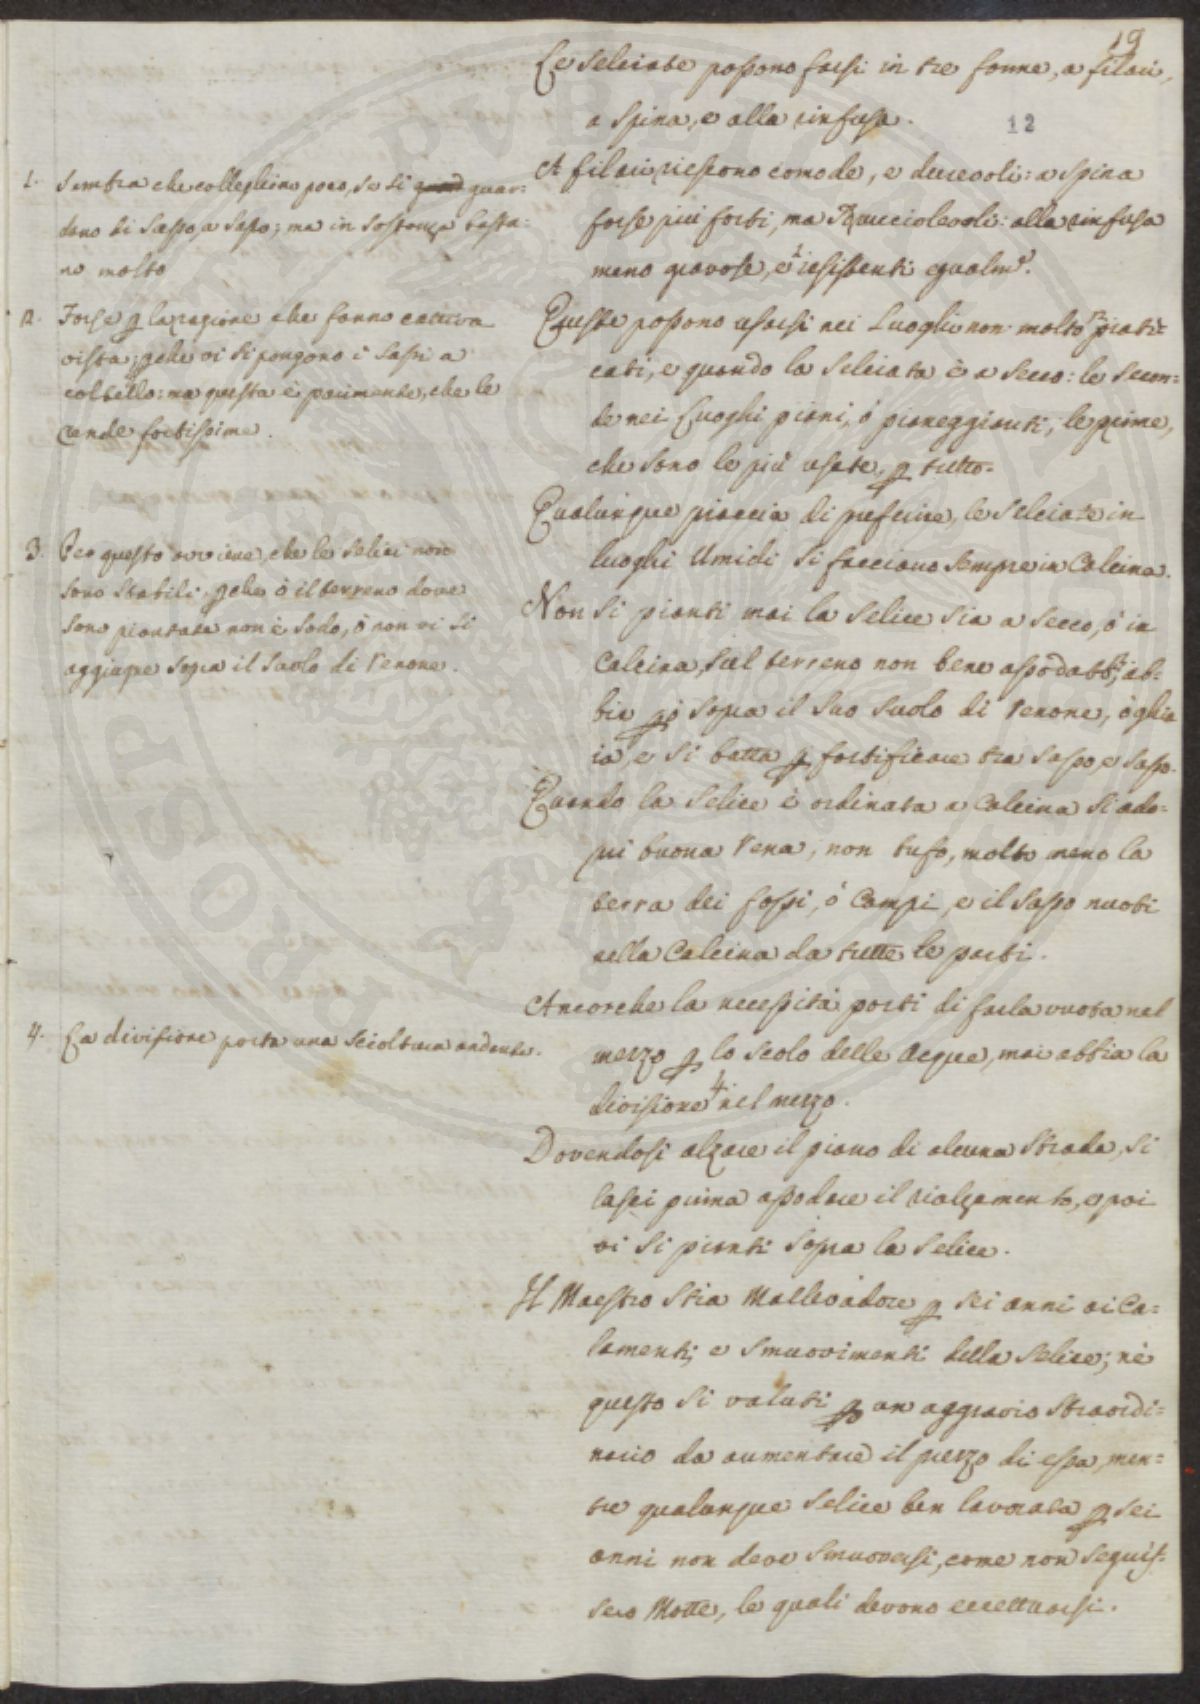 19
Le Selciate possono farsi in tre forme, a filari,
a spina, e alla rinfusa.
12
A filari riescono comode, e durevoli: a spina
forse più forti, ma sdrucciolevoli: alla rinfusa
meno gravose, e 1 resistenti egualm.e.
Queste possono usarsi nei Luoghi non molto prati=
cati, e quando la Selciata è a secco: le secon=
de nei Luoghi piani, ò pianeggianti; le prime,
che sono le più usate, p tutto.
Qualunque piaccia di preferire, le Selciate in
luoghi Umidi si facciano sempre in Calcina.
Non si pianti mai la Selice sia a secco, ò in
Calcina, sul terreno non bene assodato; 3 ab=
bia pò sopra il suo suolo di Venone, ò ghia
ia, e si batta p fortificare tra sasso, e sasso.
Quando la Selice è ordinata a Calcina si ado=
pri buona Vena, non tufo, molto meno la
terra dei fossi, ò Campi, e il sasso nuoti
nella Calcina da tutte le parti.
Ancorche la necessità porti di farla vuota nel
mezzo p lo scolo delle Acque, mai abbia la
divisione 4 nel mezzo.
Dovendosi alzare il piano di alcuna Strada, si
lasci prima assodare il rialzamento, e poi
vi si pianti sopra la Selice.
Il Maestro stia Mallevadore p sei anni ai Ca=
lamenti, e Smuovimenti della Selice; nè
questo si valuti p un aggravio straordi=
nario da aumentare il prezzo di essa, men=
tre qualunque Selice ben lavorata p sei
anni non deve smuoversi, come non seguis=
sero Motte, le quali devono eccettuarsi.
1. Sembra che colleghino poco, se si guar=
dano di sasso, a sasso; ma in sostanza basta=
no molto
2. Forse p la ragione che fanno cattiva
vista, pche vi si pongono i sassi a
coltello: ma questa è parimente, che le
rende fortissime.
3. Per questo avviene, che le Selici non
sono stabili, pche ò il terreno dove
sono piantate non è sodo, ò non vi si
aggiunge sopra il suolo di Venone.
4. La divisione porta una scioltura andante.